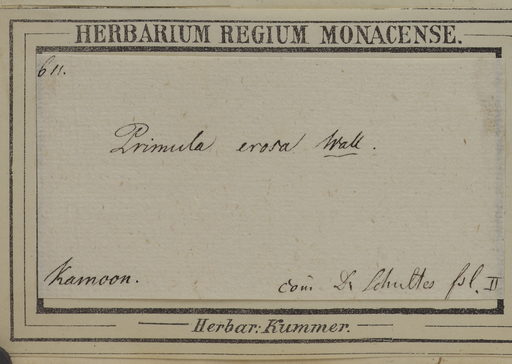 HERBARIUM REGIUM MONACENSE.
611.
Primula erosa Wall.
Kamoon.
com̄ Dr Schultes fil. II
Herbar: Kummer.